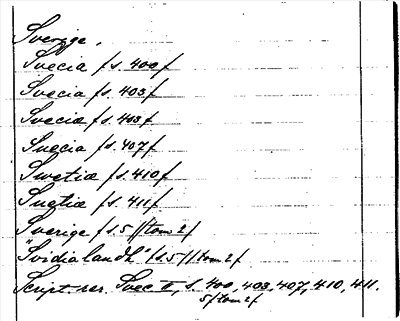 Sverige.
Svecia /s. 400/
Svecia /s. 403/
Sveciæ /s. 403/
Suecia /s. 407/
Swetiæ /s. 410/
Suetiæ /s. 411/
Sverige /s. 5 // tom 2/
"Svidialandh" /s. 5 // tom 2/
Script. rer. Svec II, s. 400, 403, 407, 410, 411.
5 / tom 2/